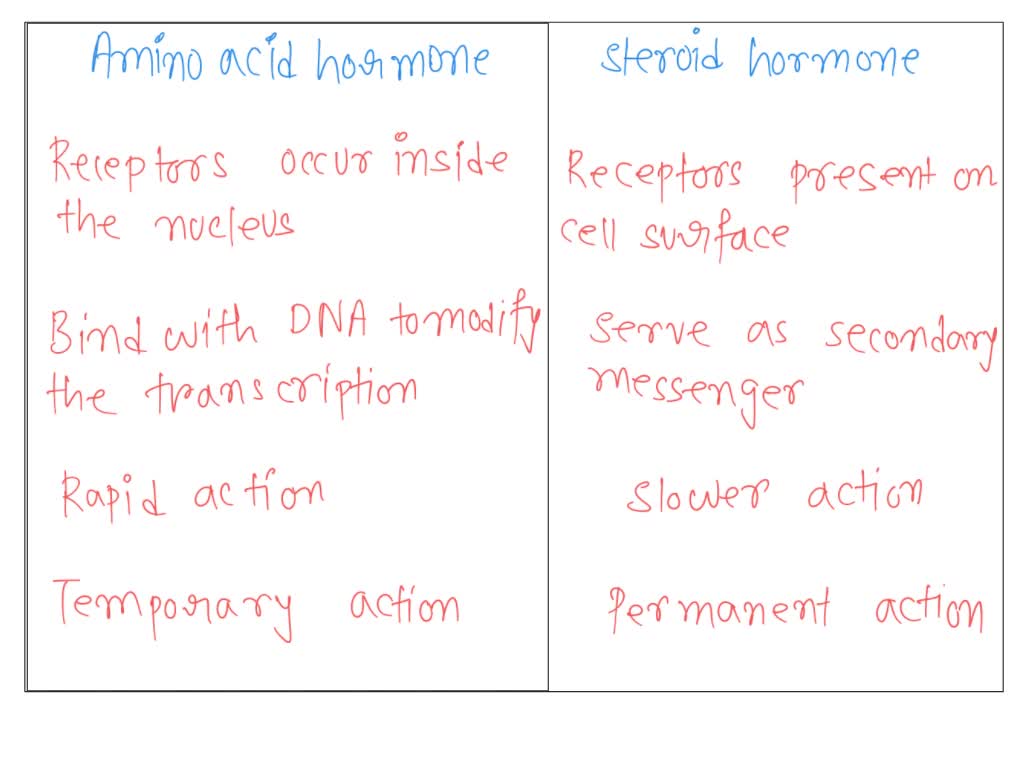 Amino acid hormone
Receptors occur inside
the nucleus
Bind with DNA to modify
the transcription
Rapid action
Temporary action
steroid hormone
Receptors present on
cell surface
serve as secondary
messenger
slower action
Permanent action